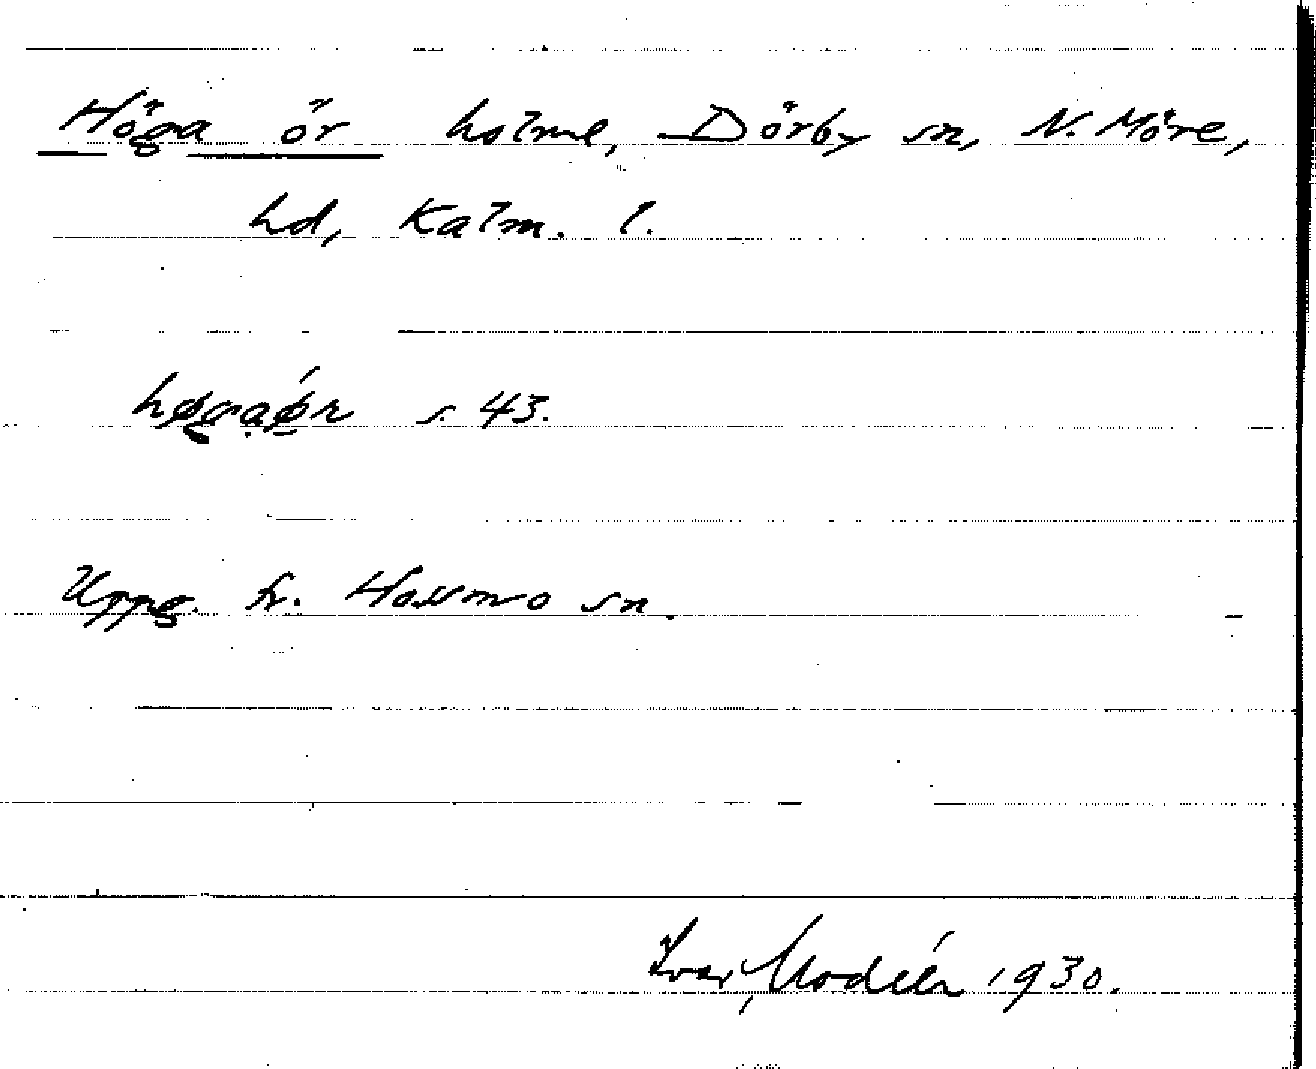 Höga ör holme, Dörby sn, N. Möre,
hd, Kalm. l.
høgaǿr s. 43.
Uppg. fr. Hossmo sn.
Ivar Modéer 1930.